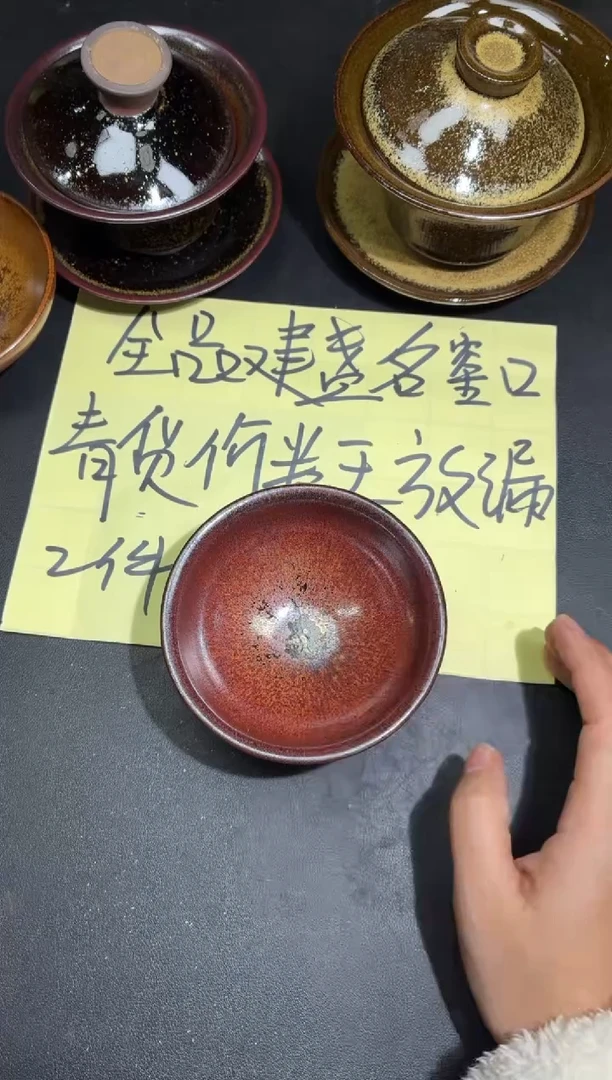 全品建盏名窑口
青货价类无放漏
2件